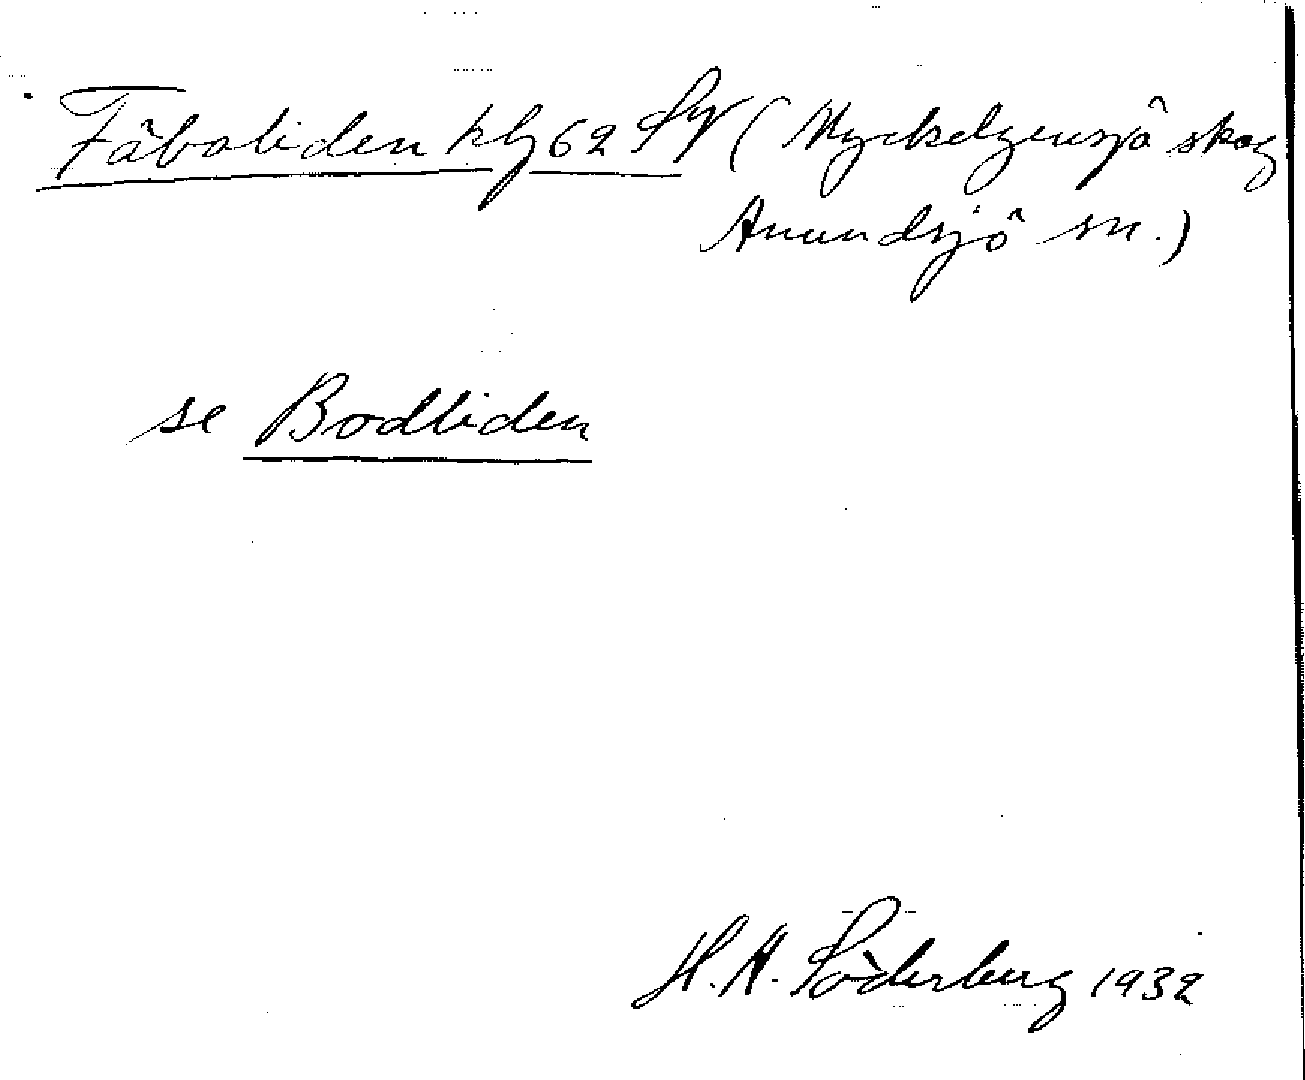 Fäboliden kbl 62 SV (Myckelgensjö skog
Anundsjö sn.)
se Bodliden
H. A. Söderberg 1932